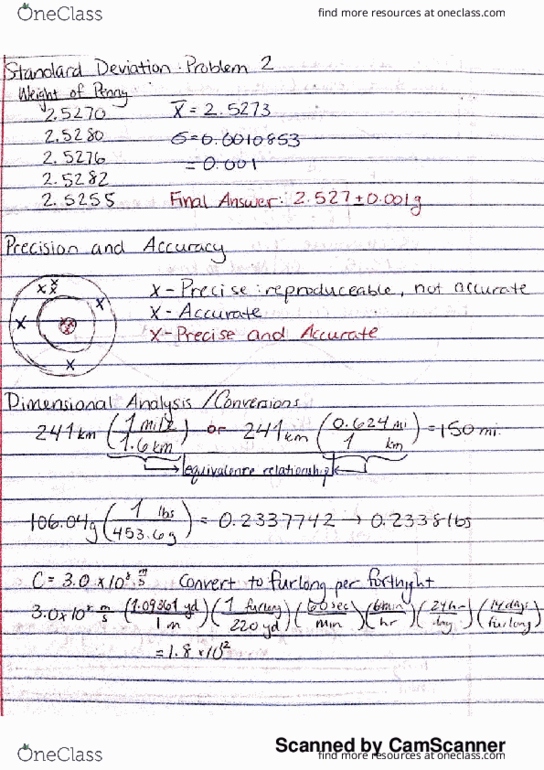 OneClass
find more resources at oneclass.com
Standard Deviation: Problem 2
Weight of Penny
2.5270 x̄ = 2.5273
2.5280 σ=0.0010853
2.5276 = 0.001
2.5282
2.5255 Final Answer: 2.527 ± 0.001g
Precision and Accuracy
x - Precise: reproduceable, not accurate
x - Accurate
x - Precise and Accurate
Dimensional Analysis / Conversions
241 km (1 mile / 1.6 km) or 241 km (0.624 mi / 1 km) = 150 mi.
equivalence relationship
106.04g (1 lbs / 453.6g) = 0.2337742 → 0.2338 lbs
C = 3.0 x 10⁸ m/s Convert to furlong per fortnight
3.0 x 10⁸ m/s (1.09361 yd / 1 m) (1 furlong / 220 yd) (60 sec / min) (6 min / hr) (24 hr / day) (14 days / furlong)
= 1.8 x 10²
Scanned by CamScanner
OneClass
find more resources at oneclass.com